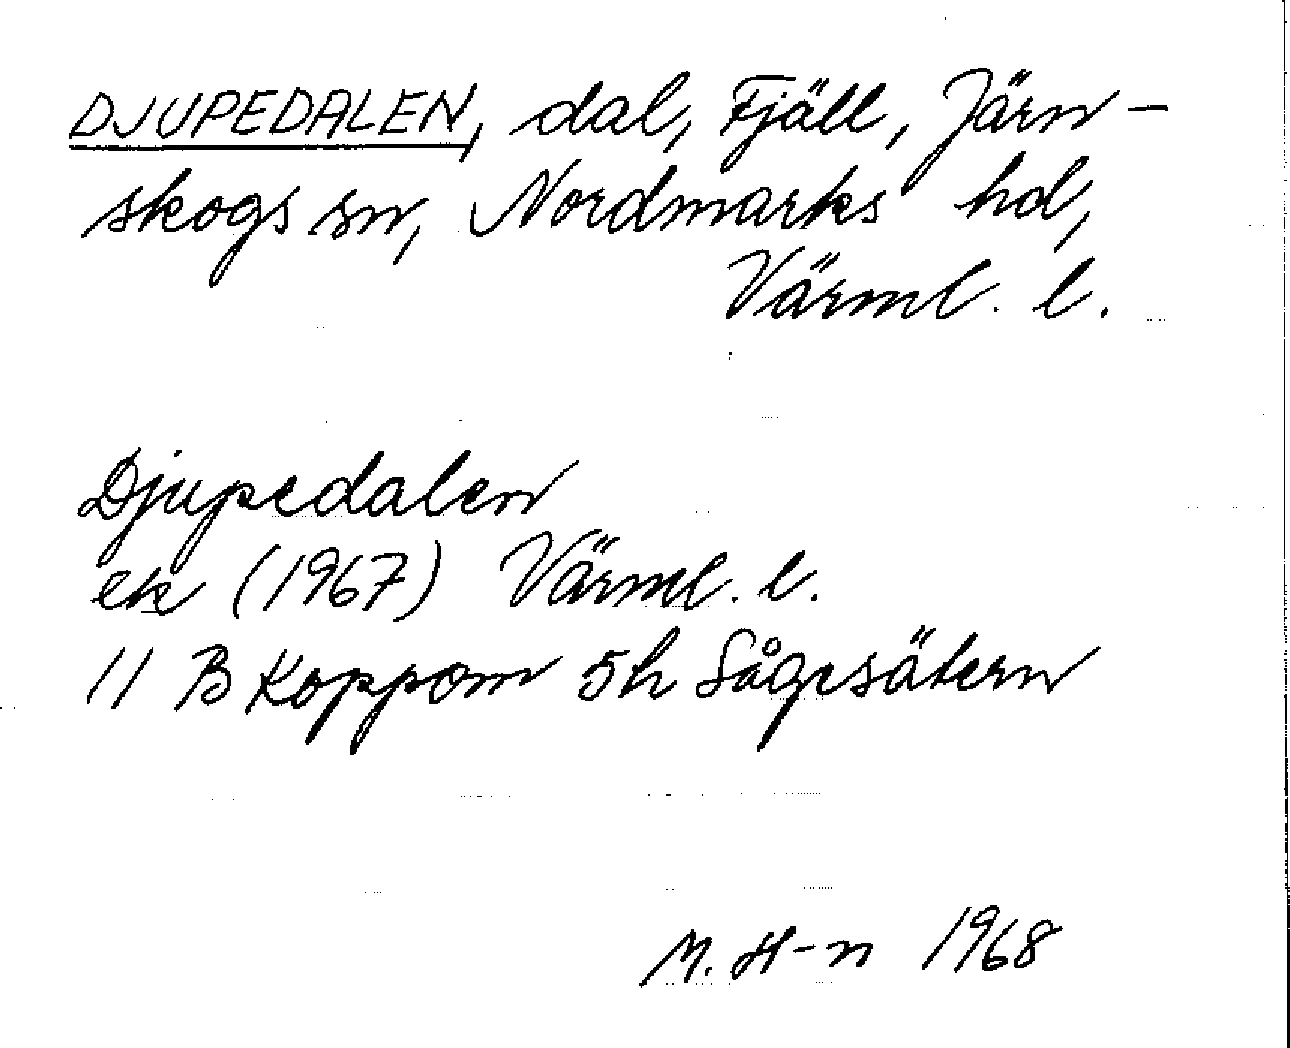 DJUPEDALEN, dal, Fjäll, Järn-
skogs sn, Nordmarks hd,
Värml. l.
Djupedalen
ek (1967) Värml. l.
11 B Koppom 5h Sågesätern
M. H-n 1968